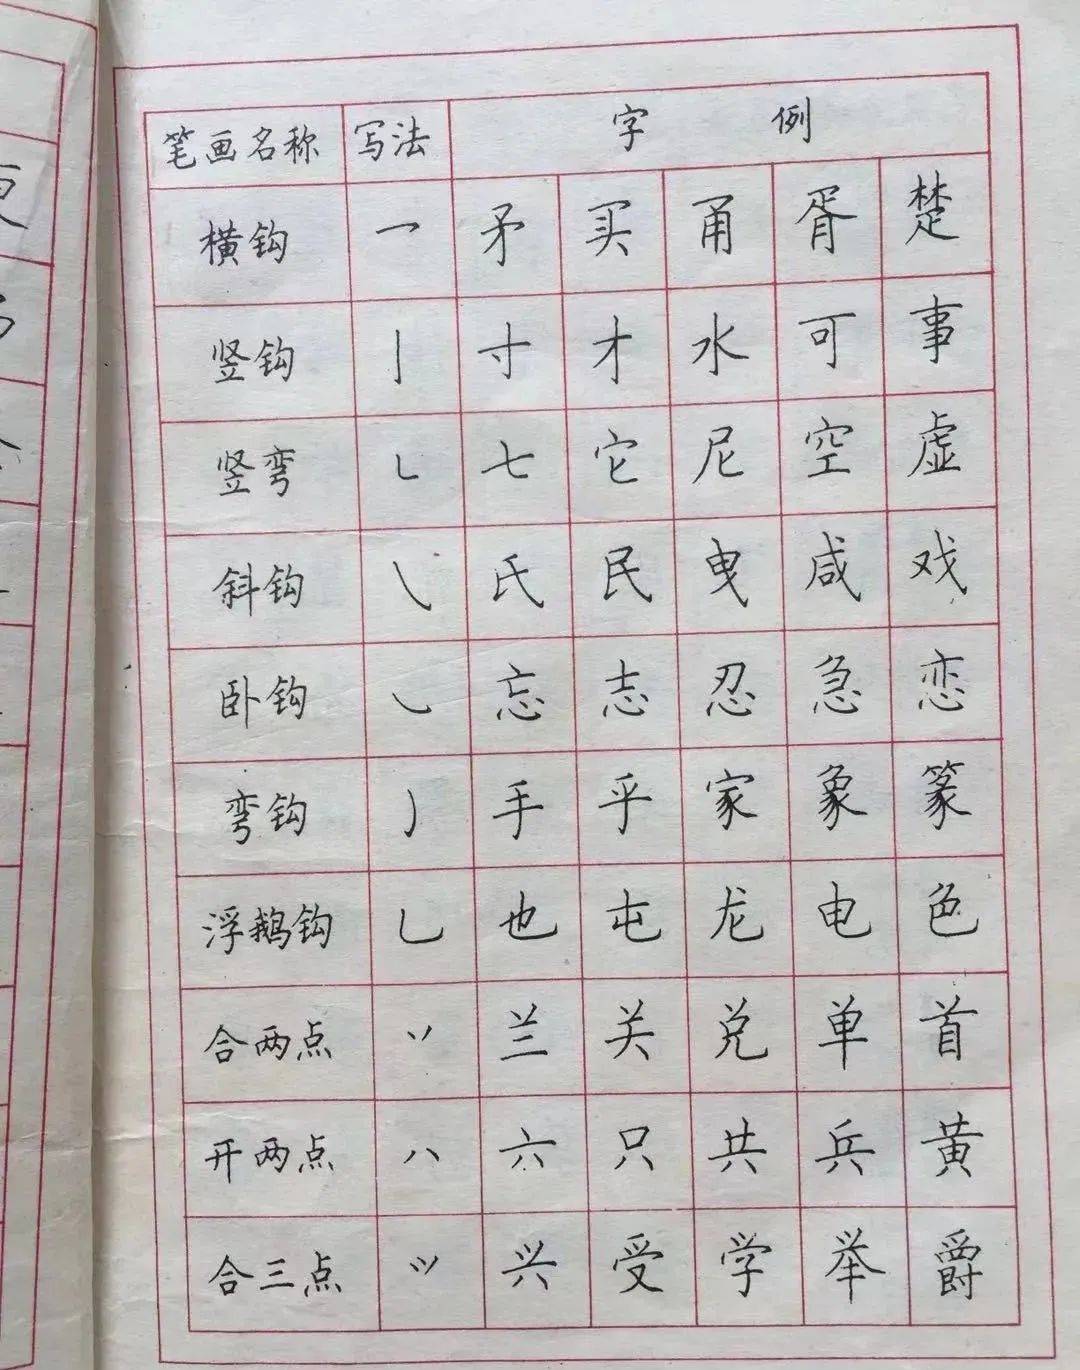 笔画名称 写法 字例
横钩 乛 矛 买 甬 胥 楚
竖钩 亅 寸 才 水 可 事
竖弯 ㇄ 七 它 尼 空 虚
斜钩 ㇂ 氏 民 曳 咸 戏
卧钩 ㇃ 忘 志 忍 急 恋
弯钩 ㇁ 手 乎 家 象 篆
浮鹅钩 乚 也 屯 龙 电 色
合两点 丷 兰 关 兑 单 首
开两点 八 六 只 共 兵 黄
合三点 ⺍ 兴 受 学 举 爵